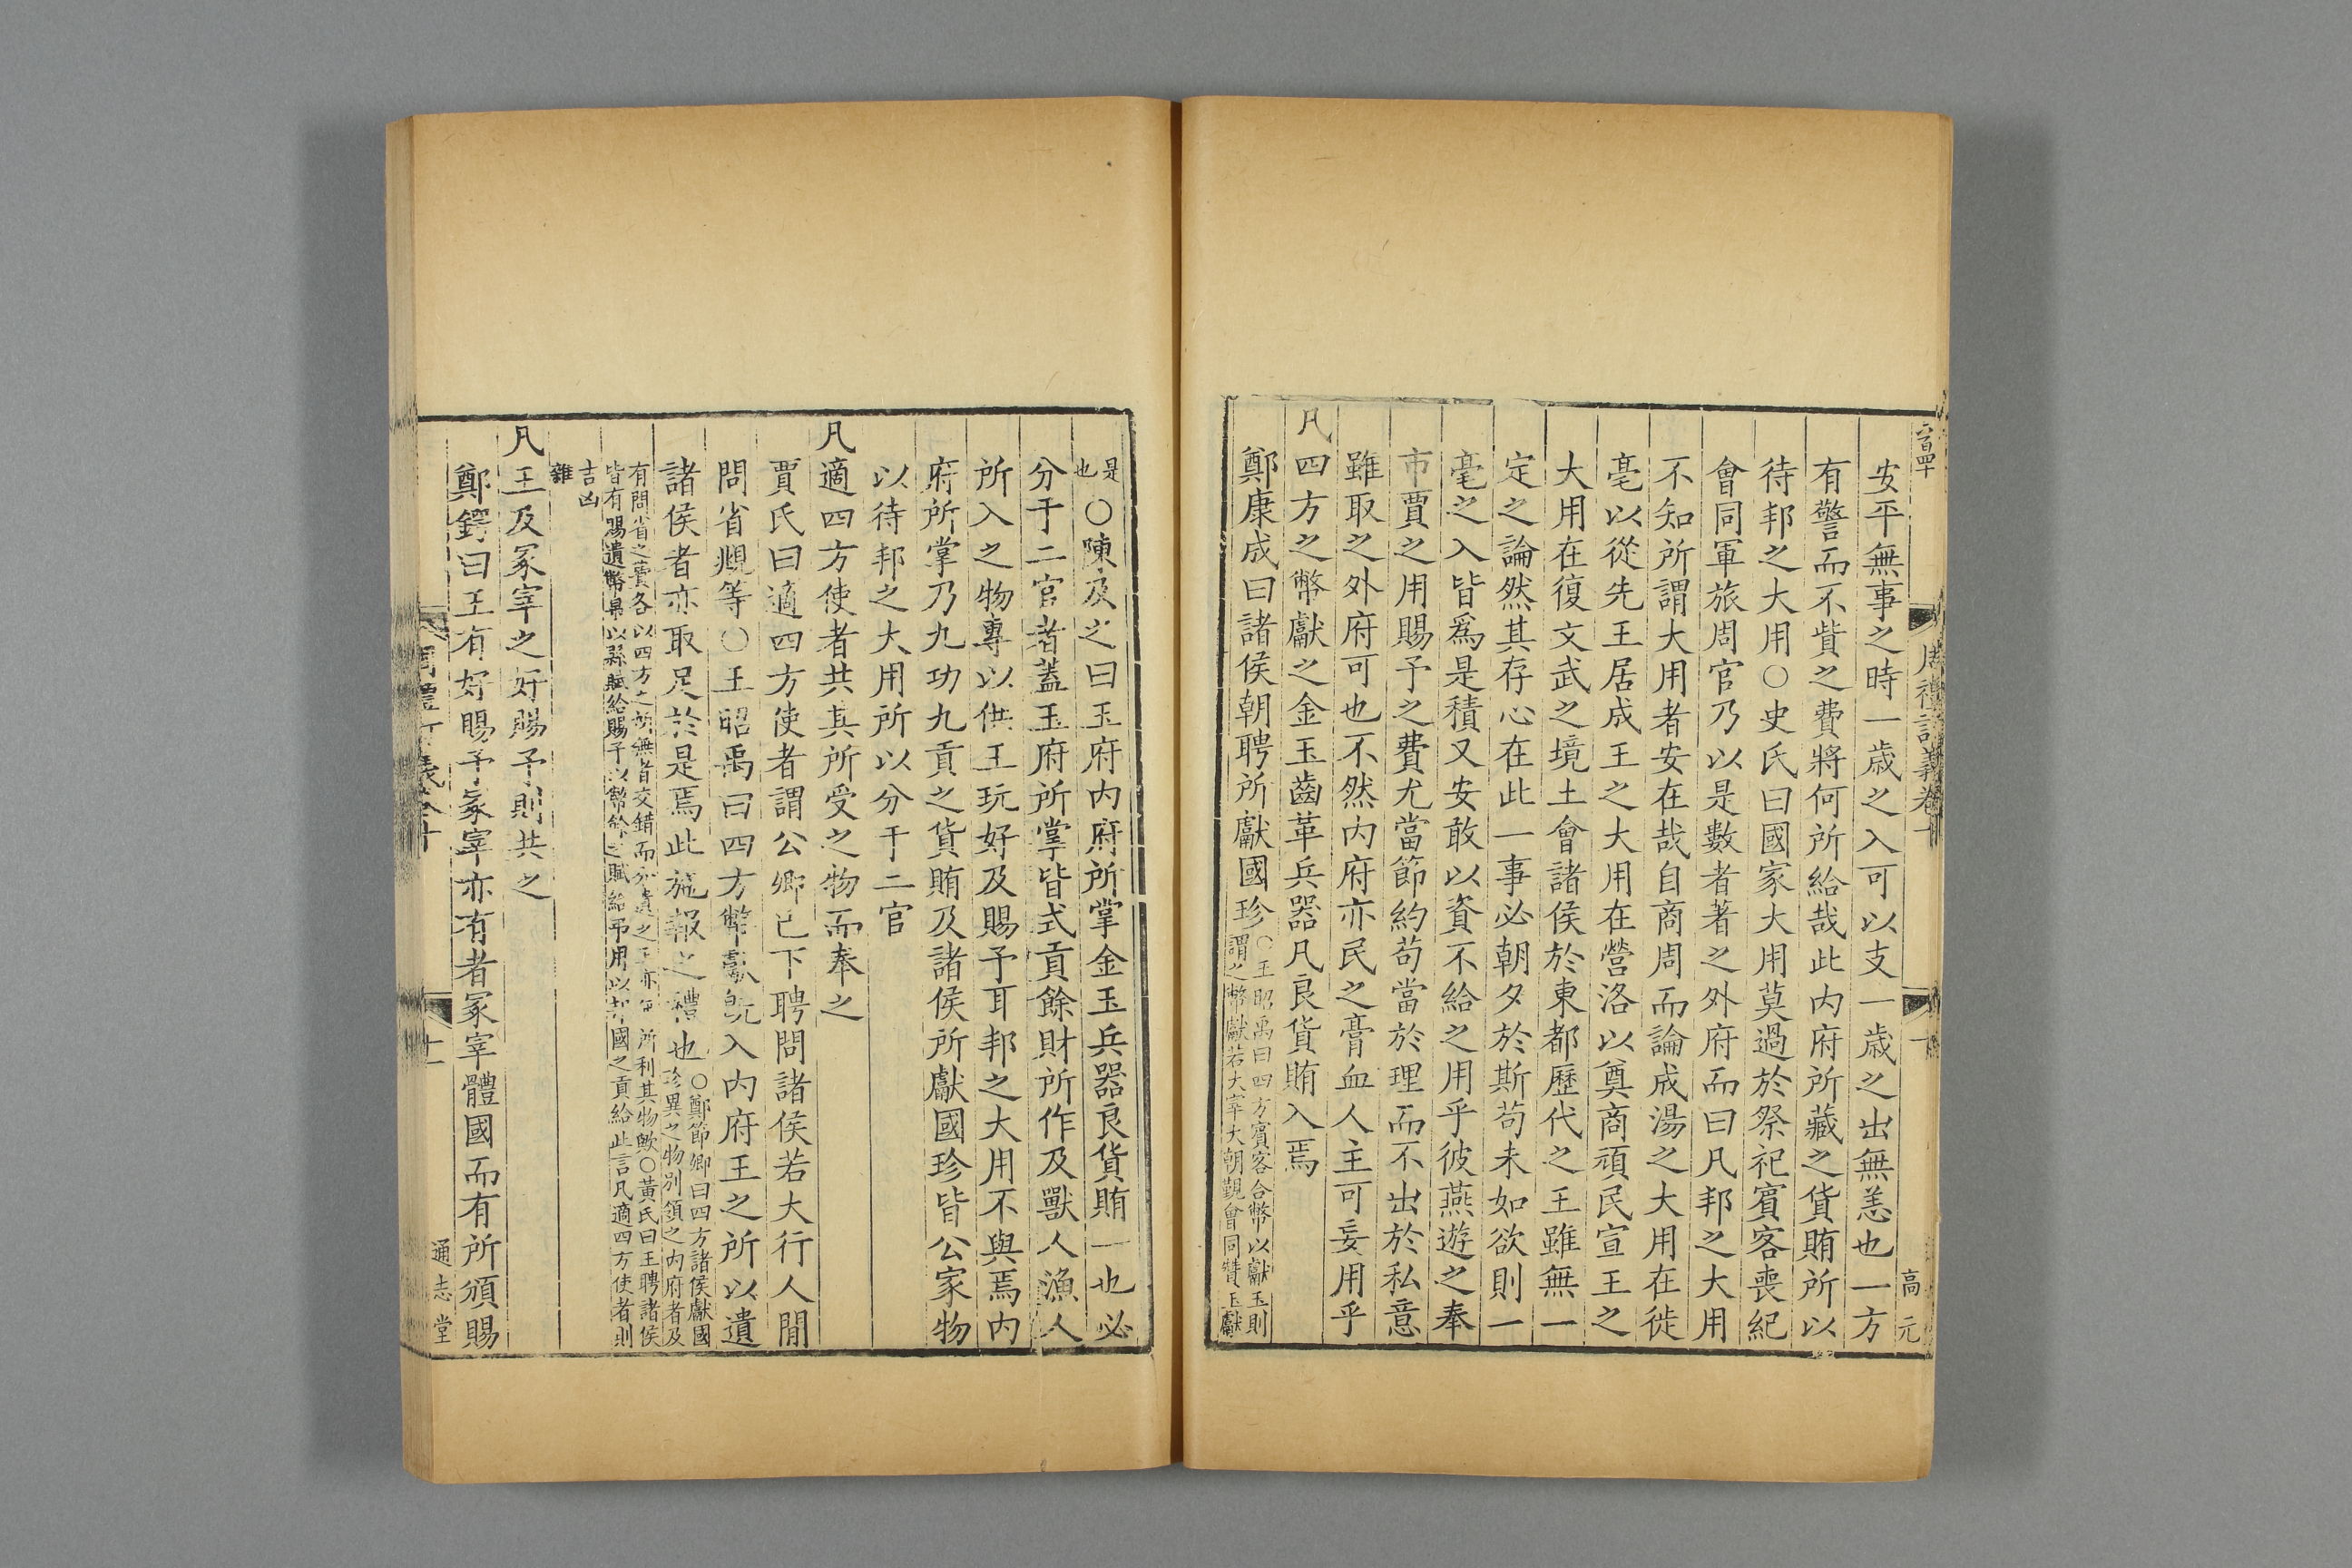 六百四十
周禮訂義卷十
高元
安平無事之時一歲之入可以支一歲之出無恙也一方
有警而不貲之費將何所給哉此內府所藏之貨賄所以
待邦之大用○史氏曰國家大用莫過於祭祀賓客喪紀
會同軍旅周官乃以是數者著之外府而曰凡邦之大用
不知所謂大用者安在哉自商周而論成湯之大用在徙
亳以從先王居成王之大用在營洛以奠商頑民宣王之
大用在復文武之境土會諸侯於東都歷代之王雖無一
定之論然其存心在此一事必朝夕於斯苟未如欲則一
毫之入皆爲是積又安敢以資不給之用乎彼燕遊之奉
市賈之用賜予之費尤當節約苟當於理而不出於私意
雖取之外府可也不然內府亦民之膏血人主可妄用乎
凡四方之幣獻之金玉齒革兵器凡良貨賄入焉
鄭康成曰諸侯朝聘所獻國珍○王昭禹曰四方賓客合幣以獻王則
謂之幣獻若大宰大朝覲會同贊玉獻
是
也○陳及之曰玉府內府所掌金玉兵器良貨賄一也必
分于二官者蓋玉府所掌皆式貢餘財所作及獸人漁人
所入之物專以供王玩好及賜予耳邦之大用不與焉內
府所掌乃九功九貢之貨賄及諸侯所獻國珍皆公家物
以待邦之大用所以分于二官
凡適四方使者共其所受之物而奉之
賈氏曰適四方使者謂公卿已下聘問諸侯若大行人閒
問省覜等○王昭禹曰四方幣獻旣入內府王之所以遺
諸侯者亦取足於是焉此施報之禮也○鄭節卿曰四方諸侯獻國
珍異之物別領之內府者及
有問省之費各以四方之所無者交錯而分遺之王亦何所利其物歟○黃氏曰王聘諸侯
皆有賜遺幣帛以縣賦給賜予以幣餘之賦給弔用以邦國之貢給此言凡適四方使者則
吉凶
雜
凡王及冢宰之好賜予則共之
鄭鍔曰王有好賜予冢宰亦有者冢宰體國而有所頒賜
周禮訂義卷十
十一
通志堂